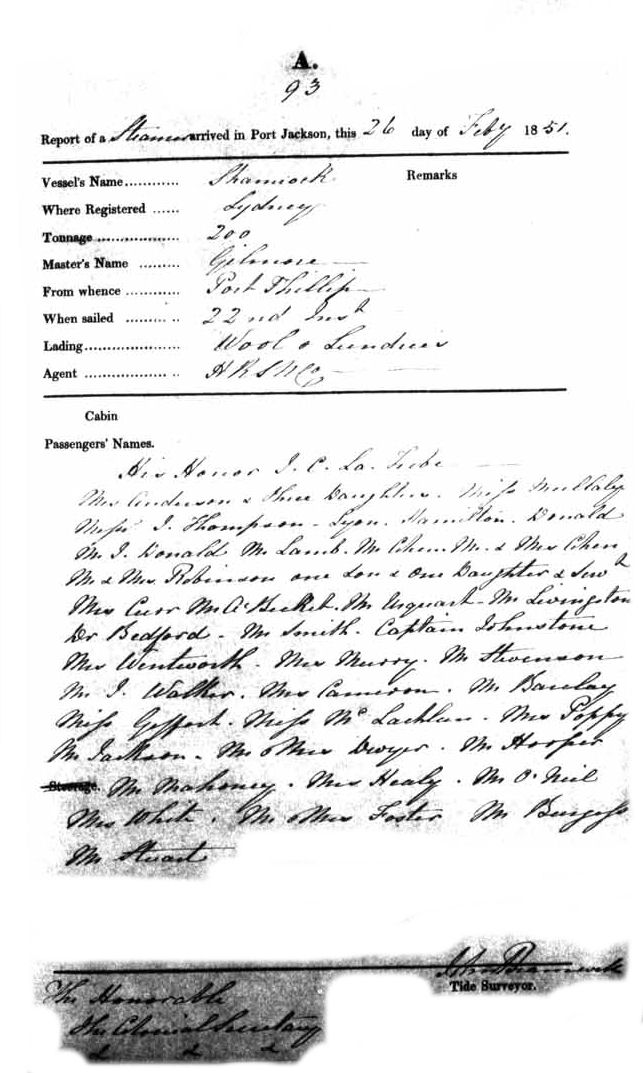 A.
93
Report of a Steamer arrived in Port Jackson, this 26 day of Feby 1851.
Vessel's Name ............ Shamrock Remarks
Where Registered ...... Sydney
Tonnage .................. 200
Master's Name ......... Gilmore
From whence ............ Port Phillip
When sailed ......... .. 22nd Inst
Lading .................... Wool & Sundries
Agent .................. .. H R S N Co
Cabin
Passengers' Names.
His Honor J. C. La. Trobe
Mrs Anderson & Three Daughters. Miss Mullaly
Messrs J. Thompson - Lyon. Hamilton. Donald
Mr J. Donald Mr Lamb. Mr Cohen. Mr & Mrs Cohen
Mr & Mrs Robinson one Son & One Daughter & Servt
Mrs Curr Mr A'Becket. Mr Urquart - Mr Livingston
Dr Bedford - Mr Smith. Captain Johnstone
Mrs Wentworth - Mrs Murry. Mr Stevenson
Mr J. Walker. Mrs Cameron. Mr Barclay
Miss Geffert. Miss McLachlan. Mrs Poppy
Mr Jackson. Mr & Mrs Dwyer. Mr Hooper
Steerage. Mr Mahoney. Mrs Healy. Mr O'Neil
Mrs White. Mr & Mrs Foster Mr Burgess
Mr Stuart
John
Tide Surveyor.
The Honorable
The Colonial Secretary
& & &